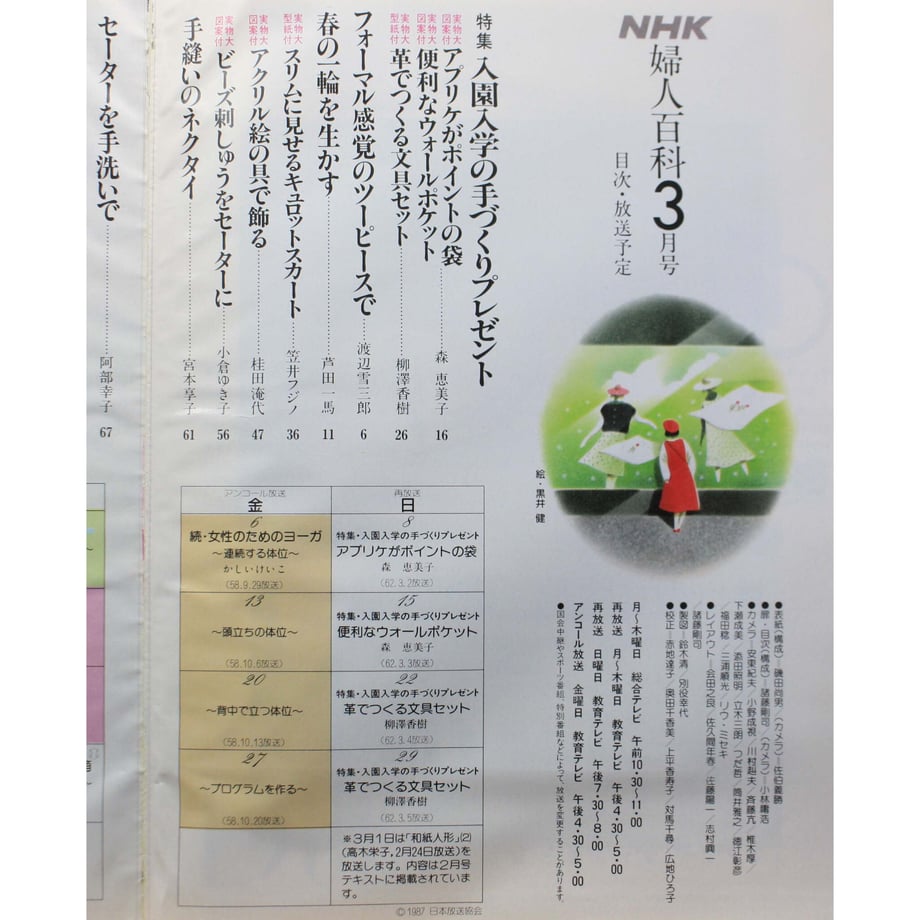 NHK
婦人百科3月号
目次・放送予定
絵・黒井 健
特集 入園入学の手づくりプレゼント
実物大図案付 アプリケがポイントの袋 森 恵美子 16
実物大図案付 便利なウォールポケット
実物大型紙付 革でつくる文具セット 柳澤香樹 26
フォーマル感覚のツーピースで 渡辺雪三郎 6
春の一輪を生かす 芦田一馬 11
実物大型紙付 スリムに見せるキュロットスカート 笠井フジノ 36
実物大図案付 アクリル絵の具で飾る 桂田淹代 47
実物大図案付 ビーズ刺しゅうをセーターに 小倉ゆき子 56
手縫いのネクタイ 宮本享子 61
セーターを手洗いで 阿部幸子 67
●表紙〈構成〉—磯田尚男/〈カメラ〉—佐伯義勝
●扉・目次〈構成〉—諸藤剛司/〈カメラ〉—小林庸浩
●カメラ—安東紀夫/小野成視/川村越夫/斉藤亢/椎木厚/
下瀬成美/添田照明/立木三朗/つだ哲/筒井雅之/徳江彰彦
/福田稔/三浦順光/リウ・ミセキ
●レイアウト—会田之良/佐久間年春/佐藤陽一/志村興一
/諸藤剛司
●製図—鈴木清/別役幸代
●校正—赤地達子/奥田千香美/上平香寿子/対馬千尋/広地ひろ子
月〜木曜日 総合テレビ 午前10・30〜11・00
再放送 月〜木曜日 教育テレビ 午後4・30〜5・00
再放送 日曜日 教育テレビ 午後7・30〜8・00
アンコール放送 金曜日 教育テレビ 午後4・30〜5・00
●国会中継やスポーツ番組、特別番組などによって、放送を変更することがあります。
アンコール放送
金
再放送
日
6
続・女性のためのヨーガ
〜連続する体位〜
かしいけいこ
(58.9.29放送)
8
特集・入園入学の手づくりプレゼント
アプリケがポイントの袋
森 恵美子
(62.3.2放送)
13
〜頭立ちの体位〜
(58.10.6放送)
15
特集・入園入学の手づくりプレゼント
便利なウォールポケット
森 恵美子
(62.3.3放送)
20
〜背中で立つ体位〜
(58.10.13放送)
22
特集・入園入学の手づくりプレゼント
革でつくる文具セット
柳澤香樹
(62.3.4放送)
27
〜プログラムを作る〜
(58.10.20放送)
29
特集・入園入学の手づくりプレゼント
革でつくる文具セット
柳澤香樹
(62.3.5放送)
※3月1日は「和紙人形」(2)
(高木栄子,2月24日放送)を
放送します。内容は2月号
テキストに掲載されていま
す。
©1987 日本放送協会